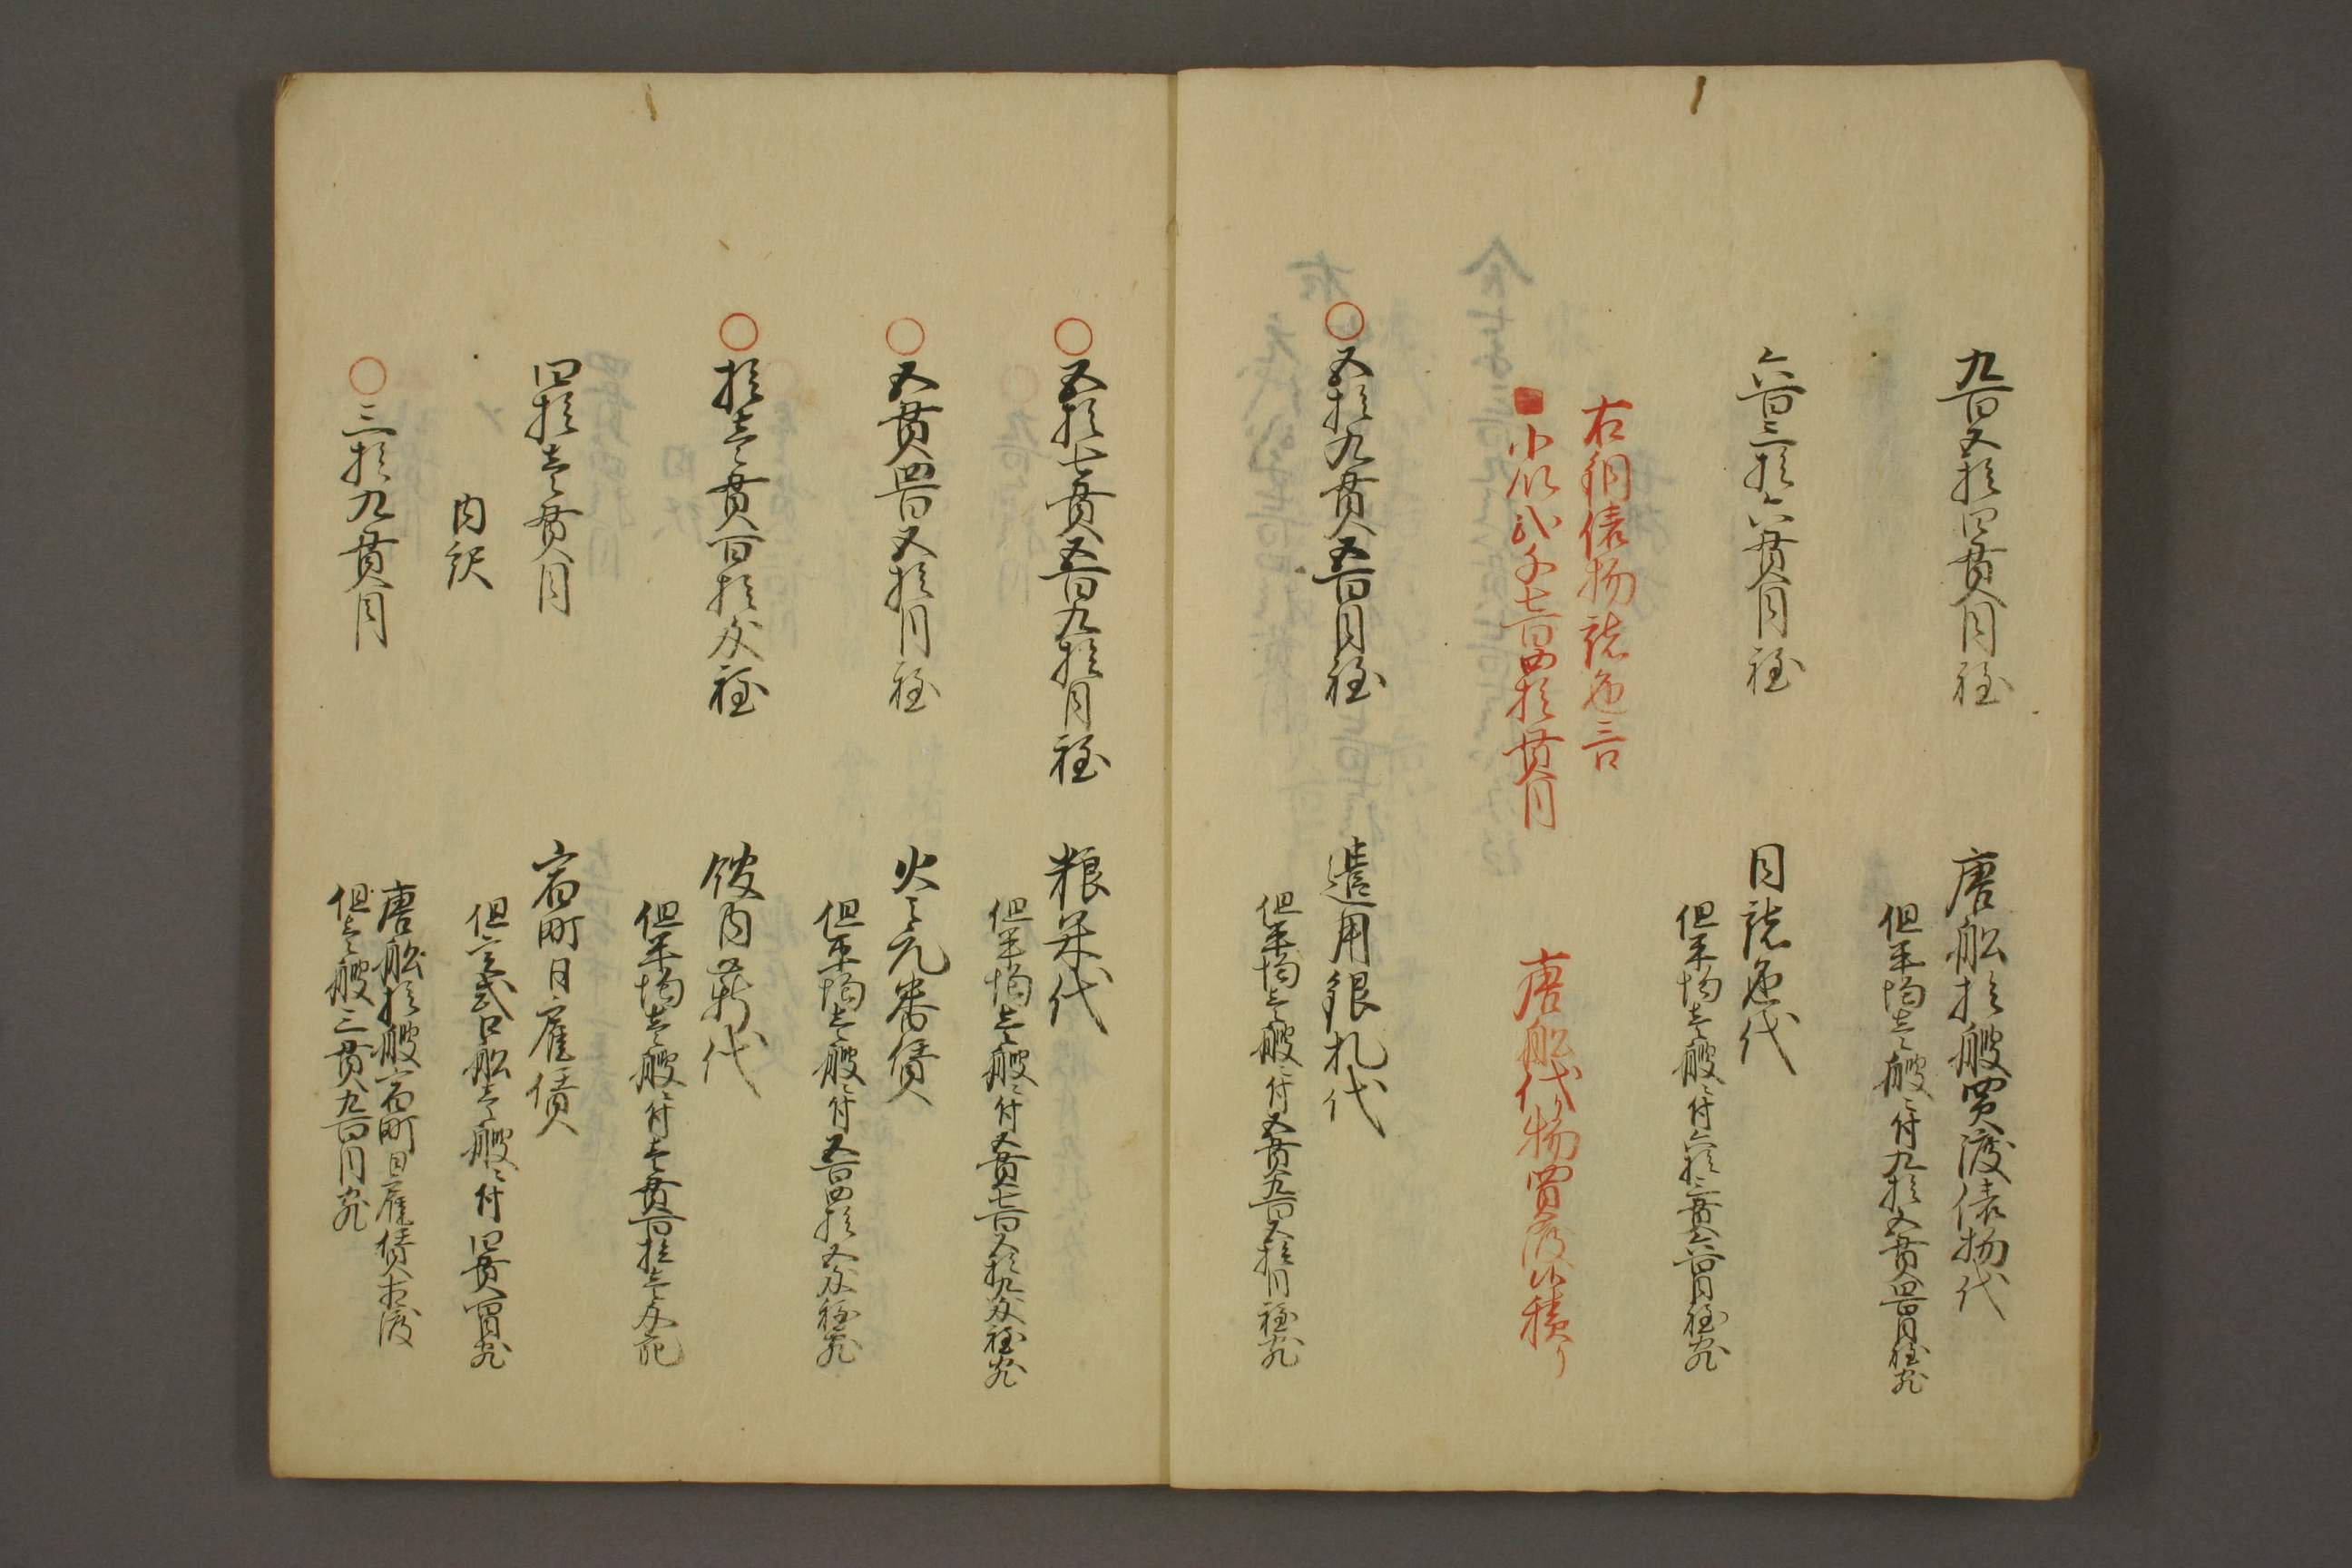 九百五拾四貫目程
唐船拾艘買渡俵物代
但平均壱艘ニ付九拾五貫四百目程宛
六百三拾六貫目程
同諸色代
但平均壱艘ニ付六拾三貫六百目程宛
右銅俵物諸色三口
小以弐千七百四拾貫目
唐船代り物買渡候積り
○五拾九貫五百目程
遣用銀札代
但平均壱艘ニ付五貫九百五拾目程宛
○五拾七貫五百九拾目程
粮米代
但平均壱艘ニ付五貫七百五拾九匁程宛
○五貫四百五拾目程
火之元番賃
但平均壱艘ニ付五百四拾五匁程宛
○拾壱貫百拾匁程
館内薪代
但平均壱艘ニ付壱貫百拾壱匁宛
四拾壱貫目
宿町日雇賃
但壱弐口船壱艘ニ付四貫百目宛
内訳
○三拾九貫目
唐船拾艘宿町日雇賃相渡
但壱艘三貫九百目宛